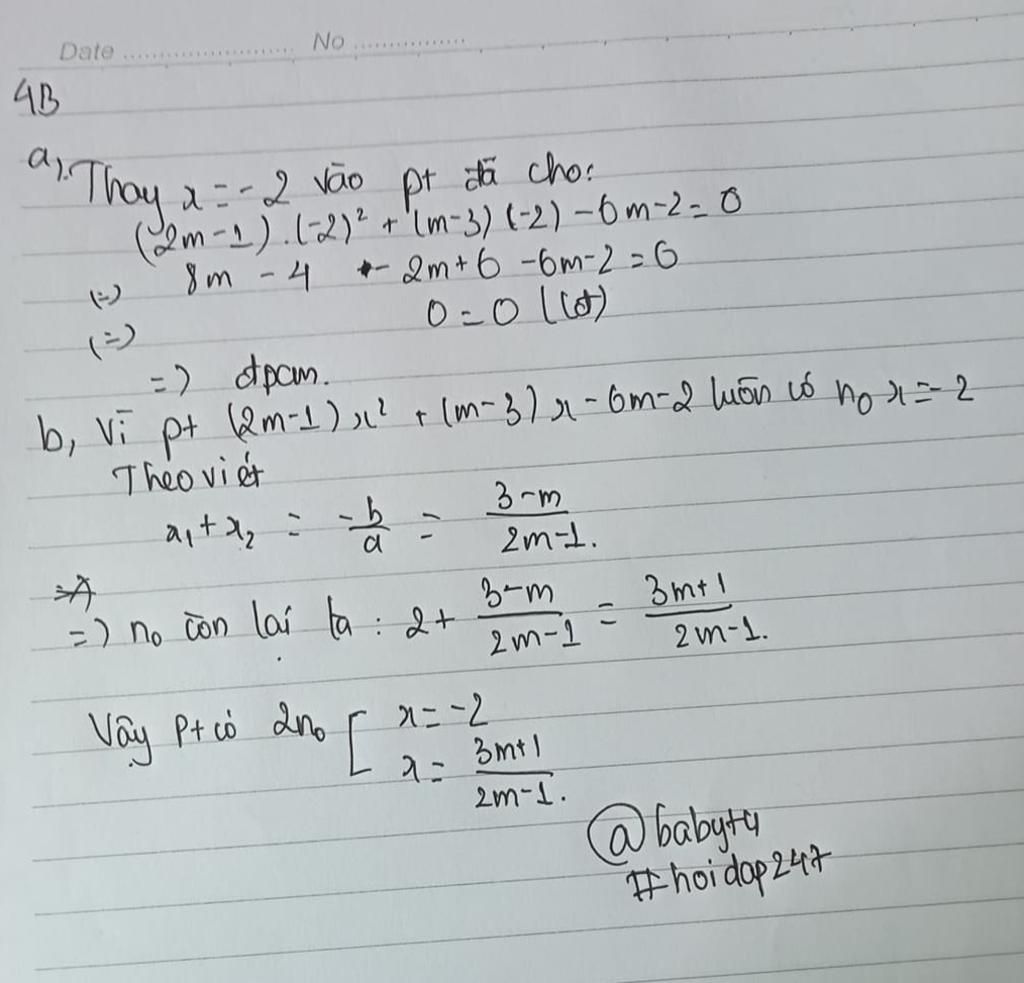 Date ........................ No ................
4B
a). Thay x = -2 vào pt đã cho:
(2m-1).(-2)² + (m-3)(-2) - 6m-2 = 0
(=) 8m - 4 - 2m+6 - 6m-2 = 0
(=) 0 = 0 (lđ)
=) đpcm.
b, Vì pt (2m-1)x² + (m-3)x - 6m-2 luôn có n₀ x = -2
Theo viét
x₁ + x₂ = -b/a = (3-m)/(2m-1).
=) n₀ còn lại là : 2 + (3-m)/(2m-1) = (3m+1)/(2m-1).
Vậy pt có 2n₀ [ x = -2
x = (3m+1)/(2m-1).
@babyty
#hoidap247